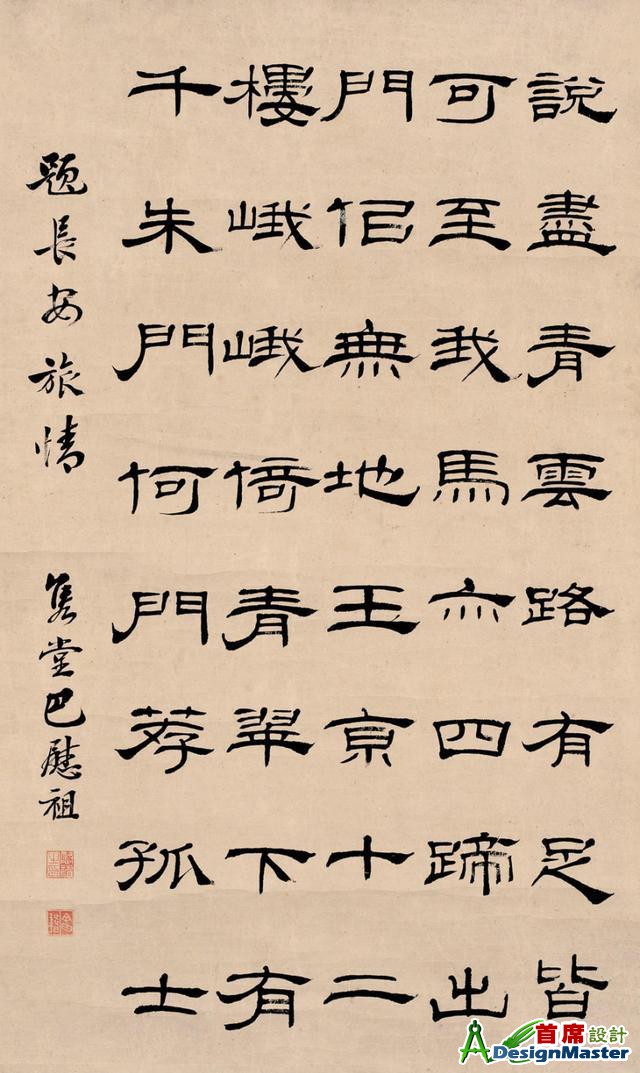 說盡青雲路有足皆
可至我馬亦四蹄出
門佀無地玉京十二
樓峨峨倚青翠下有
千朱門何門荐孤士
題長安旅情 雋堂巴慰祖
首席設計
DesignMaster